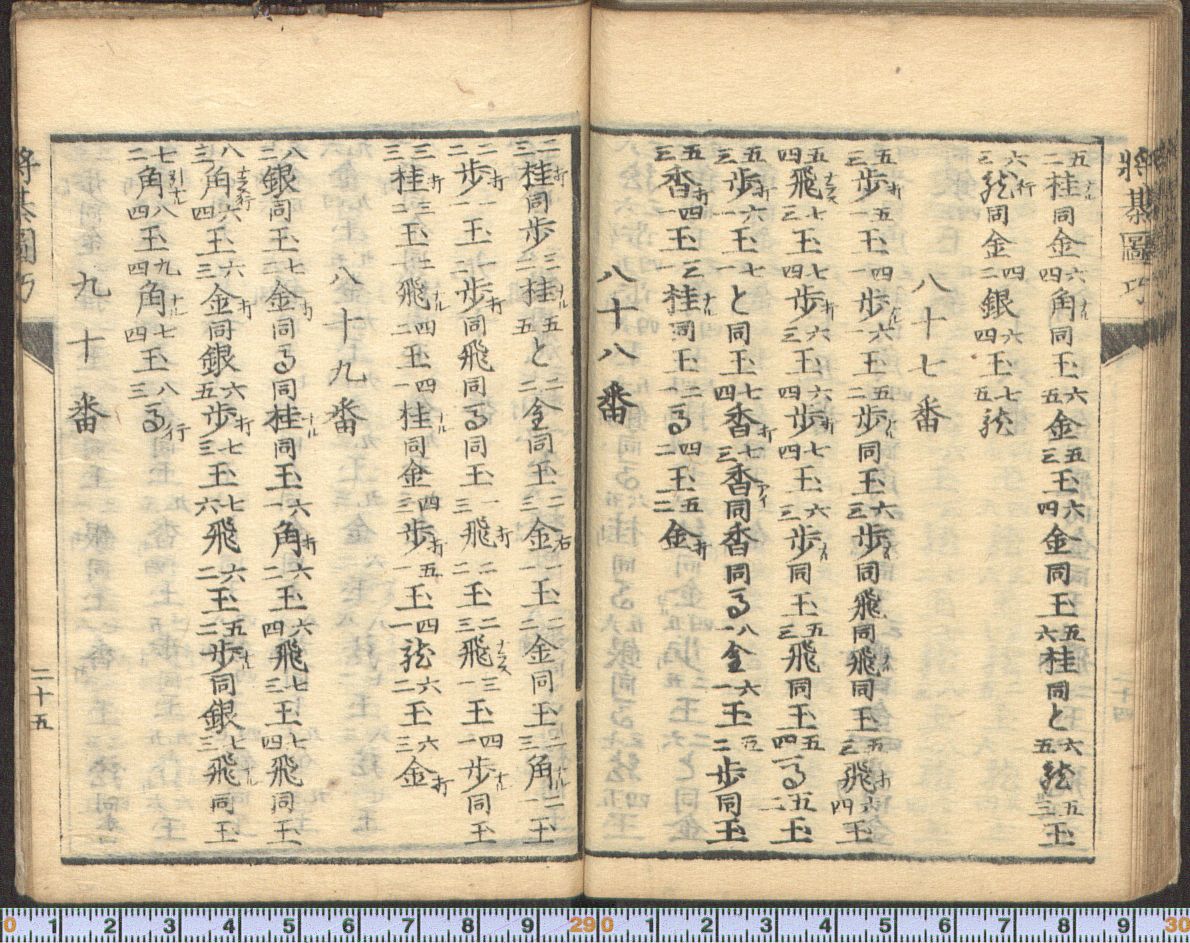 將棊圖巧
五二桂ナル同金六四角ナル同玉六五金五三玉六四金同玉五六桂同と六五龍五三玉
六三龍行同金四二銀六四玉七五龍
八十七番
五三歩打五一玉四一歩ナル六一玉五二歩ナル同玉六三歩ナル同飛同飛ナル同玉五三飛打六四玉
五四飛ナラズ七三玉七四歩打六三玉六四歩打七四玉六三歩ナル同玉五三飛同玉五四馬五二玉
五三歩打六一玉七一と同玉七四香打七三香アイ同香同馬八一金六一玉五二歩同玉
五三香打四一玉三一桂ナル同玉三二馬四二玉五二金打
八十八番
二三桂打同歩三二桂五五と二二金同玉二三金右一一玉二二金同玉一三角ナル二一玉
二二歩打一一玉二一歩打同飛同馬同玉一三飛打二二玉二三飛ナラズ三一玉四一歩ナル同玉
三三桂打三二玉二一飛ナル四二玉四一桂ナル同金四三歩打五一玉四一龍六二玉六三金打
八十九番
八二銀同玉七二金打同馬同桂ナル同玉六一角打六二玉六四飛七三玉七四飛同玉
八三角ナラズ行六四玉六三金打同銀六五歩打七三玉七六飛六二玉五二歩ナル同銀七三飛ナル同玉
七二角引ナル八四玉九四角ナル七四玉八三馬行
九十番
二十五
將棊圖巧